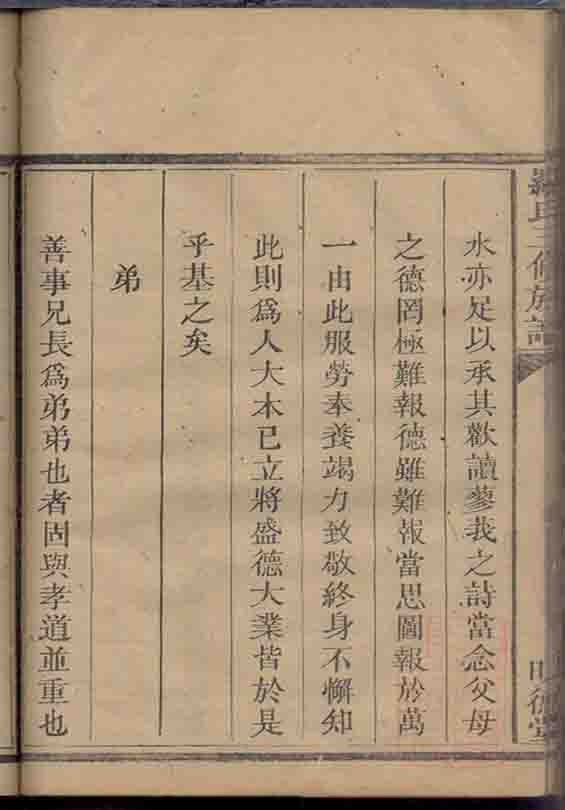 羅氏三修族譜
明德堂
水亦足以承其歡讀蓼莪之詩當念父母
之德罔極難報德雖難報當思圖報於萬
一由此服勞奉養竭力致敬終身不懈知
此則爲人大本已立將盛德大業皆於是
乎基之矣
弟
善事兄長爲弟弟也者固與孝道並重也